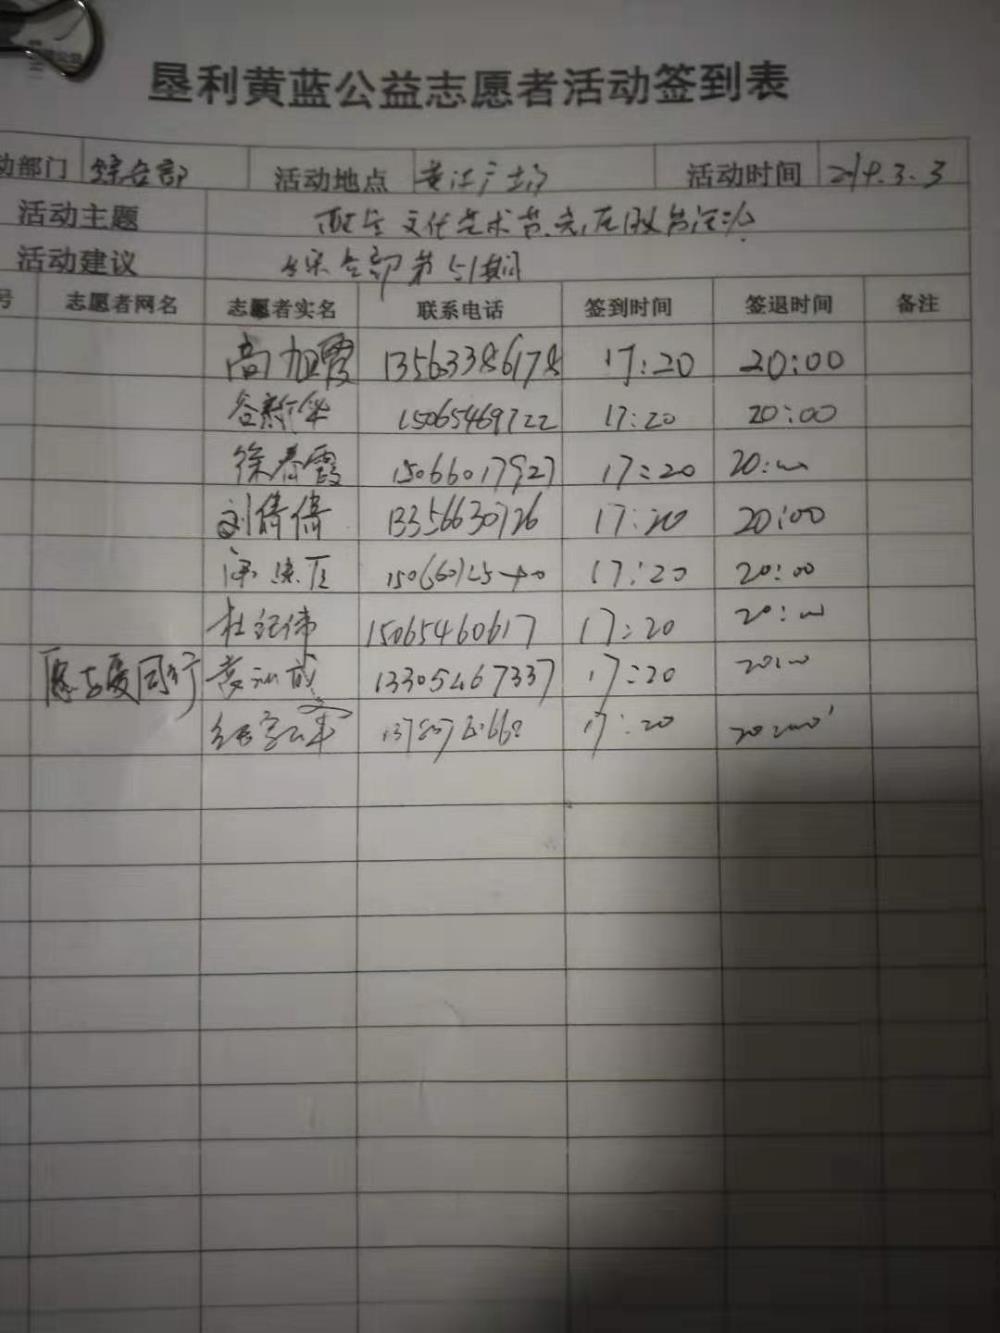 垦利黄蓝公益志愿者活动签到表
动部门 综合部 活动地点 黄河广场 活动时间 2019.3.3
活动主题 文化艺术节
活动建议 综合部第51期
号 志愿者网名 志愿者实名 联系电话 签到时间 签退时间 备注
高加霞 13563386178 17:20 20:00
谷新华 15065469722 17:20 20:00
徐春霞 15066017927 17:20 20:00
刘倩倩 13356630726 17:20 20:00
17:20 20:00
杜纪伟 15065460617 17:20 20:00
愿与爱同行 13305467337 17:20 20:00
17:20 20:00